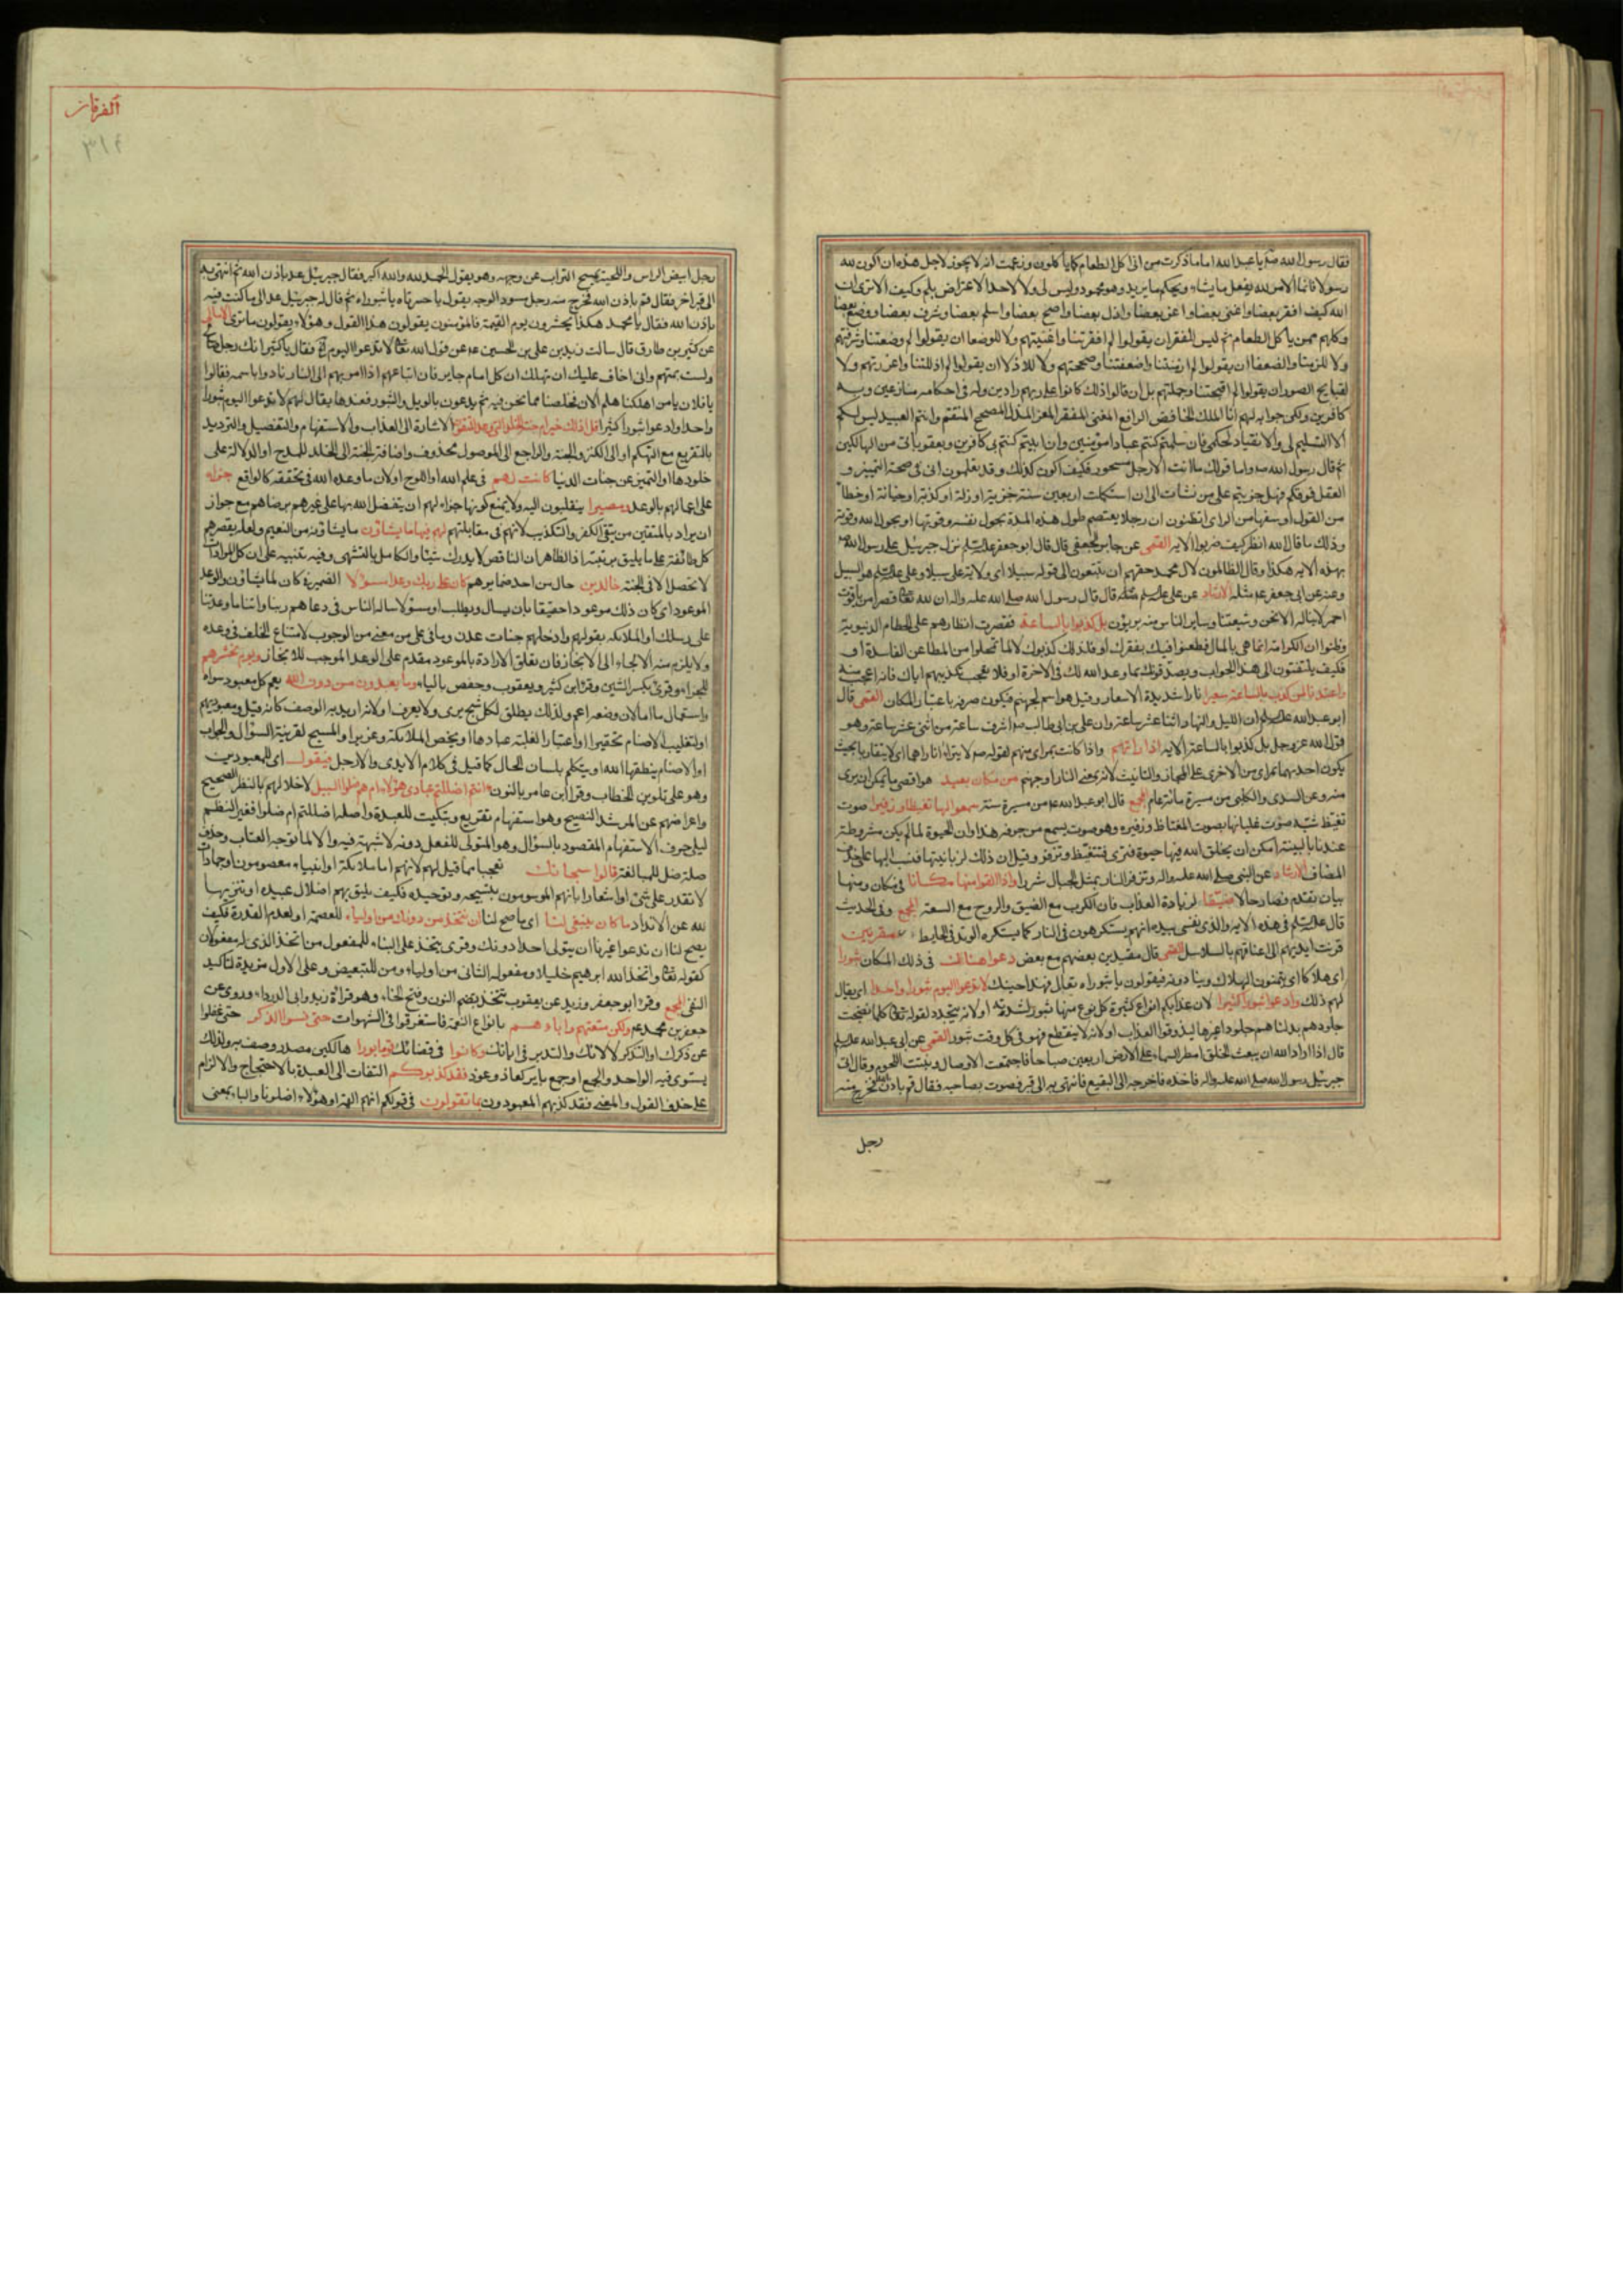 فقال رسول الله صلم يا عبد الله اما ما ذكرت من انى اكل الطعام كما يأكلون وزعمت انه لا يجوز لاجل هذه ان اكون لله
رسولا فانما الامر لله يفعل ما يشاء ويحكم ما يريد وهو محمود وليس لى ولا لاحد الاعتراض بلم وكيف الا ترى ان
الله كيف افقر بعضا واغنى بعضا واعز بعضا واذل بعضا واصح بعضا واسقم بعضا وشرف بعضا ووضع بعضا
وكلهم ممن يأكل الطعام ثم ليس للفقراء ان يقولوا لم افقرتنا واغنيتهم ولا للوضعا ان يقولوا لم وضعتنا وشرفتهم
ولا للزمنا والضعفا ان يقولوا لم ازمنتنا واضعفتنا وصححتهم ولا للاذلا ان يقولوا لم اذللتنا واعززتهم ولا
لقبايح الصور ان يقولوا لم اقبحتنا وجملتهم بل ان قالوا ذلك كانوا على ربهم رادين وله فى احكامه منازعين وبه
كافرين ولكن جوابه لهم انا الملك الخافض الرافع المغنى المفقر المعز المذل المصحح المسقم وانتم العبيد ليس لكم
الا التسليم لى والانقياد لحكمى فان سلمتم كنتم عبادا مؤمنين وان ابيتم كنتم بى كافرين وبعقوباتى من الهالكين
ثم قال رسول الله واما قولك ما انت الا رجل مسحور فكيف اكون كذلك وقد تعلمون انى فى صحة التمييز و
العقل فوقكم فهل جربتم على من نشات الى ان استكملت اربعين سنة خزية او زلة او كذبة او خيانة او خطأ
من القول او سفها من الراى اتظنون ان رجلا يعتصم طول هذه المدة بحول نفسه وقوتها او بحول الله وقوته
وذلك ما قال الله انظر كيف ضربوا الاية القمى عن جابر الجعفى قال قال ابو جعفر نزل جبرئيل على رسول الله
بهذه الاية هكذا وقال الظالمون لال محمد حقهم ان تتبعون الى قوله سبيلا اى ولاية على سبيلا وعلى هو السبيل
وعنه عن ابى جعفر مثله الارشاد عن على قال قال رسول الله صلى الله عليه واله ان لله قصرا من ياقوت
احمر لا يناله الا نحن وشيعتنا وساير الناس منه بريؤن بل كذبوا بالساعة فقصرت انظارهم على الحطام الدنيوية
وظنوا ان الكرامة انما هى بالمال فطعنوا فيك بفقرك او فلذلك كذبوك لا لما تمحلوا من المطاعن الفاسدة او
فكيف يلتفتون الى هذا الجواب ويصدقونك بما وعد الله لك فى الاخرة او فلا تعجب تكذيبهم اياك فانه اعجب منه
واعتدنا لمن كذب بالساعة سعيرا نارا شديدة الاسعار وقيل هو اسم لجهنم فيكون صرفه باعتبار المكان القمى قال
ابو عبد الله ان الليل والنهار اثنتا عشر ساعة وان على بن ابى طالب اشرف ساعة من اثنى عشر ساعة وهو
قول الله عز وجل بل كذبوا بالساعة الاية اذا راتهم واذا كانت بمراى منهم لقوله لا يتراءا ناراهما اى لا يتقاربا بحيث
يكون احدهما بمراى من الاخرى على المجاز والتانيث لانه بمعنى النار او جهنم من مكان بعيد هو اقصى ما يمكن ان يرى
منه وعن السدى والكلبى من مسيرة مائة عام المجمع قال ابو عبد الله من مسيرة سنة سمعوا لها تغيظا وزفيرا صوت
تغيظ شبه صوت غليانها بصوت المغتاظ وزفيره وهو صوت يسمع من جوفه هذا وان الحيوة لما لم يكن مشروطة
عندنا بالبينة امكن ان يخلق الله فيها حيوة فترى فتتغيظ وتزفر وقيل ان ذلك لزبانيتها فنسب اليها على حذف
المضاف الارشاد عن النبى صلى الله عليه واله وتزفر النار بمثل الجبال شررا واذا القوا منها مكانا فى مكان ومنها
بيان تقدم فصار حالا ضيقا لزيادة العذاب فان الكرب مع الضيق والروح مع السعة المجمع وفى الحديث
قال فى هذه الاية والذى نفسى بيده انهم يستكرهون فى النار كما يستكره الوتد فى الحايط مقرنين
قرنت ايديهم الى اعناقهم بالسلاسل القمى قال مقيدين بعضهم مع بعض دعوا هنالك فى ذلك المكان ثبورا
اى هلاكا اى يتمنون الهلاك وينادونه فيقولون يا ثبوراه تعال فهذا حينك لا تدعوا اليوم ثبورا واحدا اى يقال
لهم ذلك وادعوا ثبورا كثيرا لان عذابكم انواع كثيرة كل نوع منها ثبور لشدته او لانه يتجدد لقوله كلما نضجت
جلودهم بدلناهم جلودا غيرها ليذوقوا العذاب او لانه لا ينقطع فهو فى كل وقت ثبور القمى عن ابى عبد الله
قال اذا اراد الله ان يبعث الخلق امطر السماء على الارض اربعين صباحا فاجتمعت الاوصال ونبتت اللحوم وقال اتى
جبرئيل رسول الله صلى الله عليه واله فاخذه فاخرجه الى البقيع فانتهى به الى قبر فصوت بصاحبه فقال قم باذن الله فخرج منه
رجل
الفرقان
٣١٤
رجل ابيض الراس واللحية يمسح التراب عن وجهه وهو يقول الحمد لله والله اكبر فقال جبرئيل عد باذن الله ثم انتهى به
الى قبر اخر فقال قم باذن الله فخرج منه رجل مسود الوجه يقول يا حسرتاه يا ثبوراه ثم قال له جبرئيل عد الى ما كنت فيه
باذن الله فقال يا محمد هكذا يحشرون يوم القيمة فالمؤمنون يقولون هذا القول وهؤلاء يقولون ما ترى الامالى
عن كثير بن طارق قال سالت زيد بن على بن الحسين عن قول الله لا تدعوا اليوم فقال يا كثير انك رجل صالح
ولست بمتهم وانى اخاف عليك ان تهلك ان كل امام جاير فان اتباعهم اذا امر بهم الى النار نادوا باسمه فقالوا
يا فلان يا من اهلكنا هلم الان فخلصنا مما نحن فيه ثم يدعون بالويل والثبور فعندها يقال لهم لا تدعوا اليوم ثبورا
واحدا وادعوا ثبورا كثيرا قل اذلك خير ام جنة الخلد التى وعد المتقون الاشارة الى العذاب والاستفهام والتفضيل والترديد
بالتقريع مع التهكم او الى الكنز والجنة والراجع الى الموصول محذوف واضافة الجنة الى الخلد للمدح او الدلالة على
خلودها او التميز عن جنات الدنيا كانت لهم فى علم الله او اللوح او لان ما وعده الله فى تحققه كالواقع جزاء
على اعمالهم بالوعد ومصيرا ينقلبون اليه ولا يمنع كونها جزاء لهم ان يتفضل الله بها على غيرهم برضاهم مع جواز
ان يراد بالمتقين من يتقى الكفر والتكذيب لانهم فى مقابلتهم لهم فيها ما يشاؤن ما يشاؤنه من النعيم ولعله يقصر هم
كل طائفة على ما يليق برتبته اذ الظاهر ان الناقص لا يدرك شيئا والكامل بالتشهى وفيه تنبيه على ان كل المرادات
لا تحصل الا فى الجنة خالدين حال من احد ضمايرهم كان على ربك وعدا مسؤلا الضمير فى كان لما يشاؤن والوعد
الموعود اى كان ذلك موعودا حقيقا بان يسال ويطلب او مسؤلا ساله الناس فى دعاهم ربنا واتنا ما وعدتنا
على رسلك او الملائكة بقولهم وادخلهم جنات عدن وما فى على من معنى من الوجوب لامتناع الخلف فى وعده
ولا يلزم منه الالجاء الى الانجاز فان تعلق الارادة بالموعود مقدم على الوعد الموجب للانجاز ويوم نحشرهم
للجزاء وقرئ بكسر الشين وقرء ابن كثير ويعقوب وحفص بالياء وما يعبدون من دون الله يعم كل معبود سواه
واستعمال ما اما لان وضعه اعم ولذلك يطلق لكل شبح يرى ولا يعرف او لانه اريد به الوصف كانه قيل ومعبوديهم
او لتغليب الاصنام تحقيرا او اعتبارا لغلبة عبادها او يخص الملائكة وعزيرا والمسيح لقرينة السؤال والجواب
او الاصنام ينطقها الله او يتكلم بلسان الحال كما قيل فى كلام الايدى والارجل فيقول اى للمعبودين
وهو على تلوين الخطاب وقرا ابن عامر بالنون ءانتم اضللتم عبادى هؤلاء ام هم ضلوا السبيل لاخلالهم بالنظر الصحيح
واعراضهم عن المرشد النصيح وهو استفهام تقريع وتبكيت للعبدة واصله اضللتم ام ضلوا فغير النظم
ليلى حرف الاستفهام المقصود بالسؤال وهو المتولى للفعل دونه لانه لا شبهة فيه والا لما توجه العتاب وحذف
صلة ضل للمبالغة قالوا سبحانك تعجبا مما قيل لهم لانهم اما ملائكة او انبياء معصومون او جمادات
لا تقدر على شئ او اشعارا بانهم الموسومون بتسبيحه وتوحيده فكيف يليق بهم اضلال عبيده او تنزيها
لله عن الانداد ما كان ينبغى لنا اى ما صح لنا ان نتخذ من دونك من اولياء للعصمة او لعدم القدرة فكيف
يصح لنا ان ندعوا غيرنا ان يتولى احدا دونك وقرى يتخذ على البناء للمفعول من اتخذ الذى له مفعولان
كقوله واتخذ الله ابرهيم خليلا ومفعوله الثانى من اولياء ومن للتبعيض وعلى الاول مزيدة لتاكيد
النفى المجمع وقرء ابو جعفر وزيد عن يعقوب نتخذ بضم النون وفتح الخاء وهو قراءة زيد وابى الدرداء وروى عن
جعفر بن محمد ولكن متعتهم واباءهم بانواع النعمة فاستغرقوا فى الشهوات حتى نسوا الذكر حتى غفلوا
عن ذكرك او التذكر لالائك والتدبر فى اياتك وكانوا فى قضائك قوما بورا هالكين مصدر وصف به ولذلك
يستوى فيه الواحد والجمع او جمع باير كعائذ وعوذ فقد كذبوكم التفات الى العبدة بالاحتجاج والالزام
على حذف القول والمعنى فقد كذبهم المعبودون بما تقولون فى قولكم انهم الهة او هؤلاء اضلونا والباء بمعنى